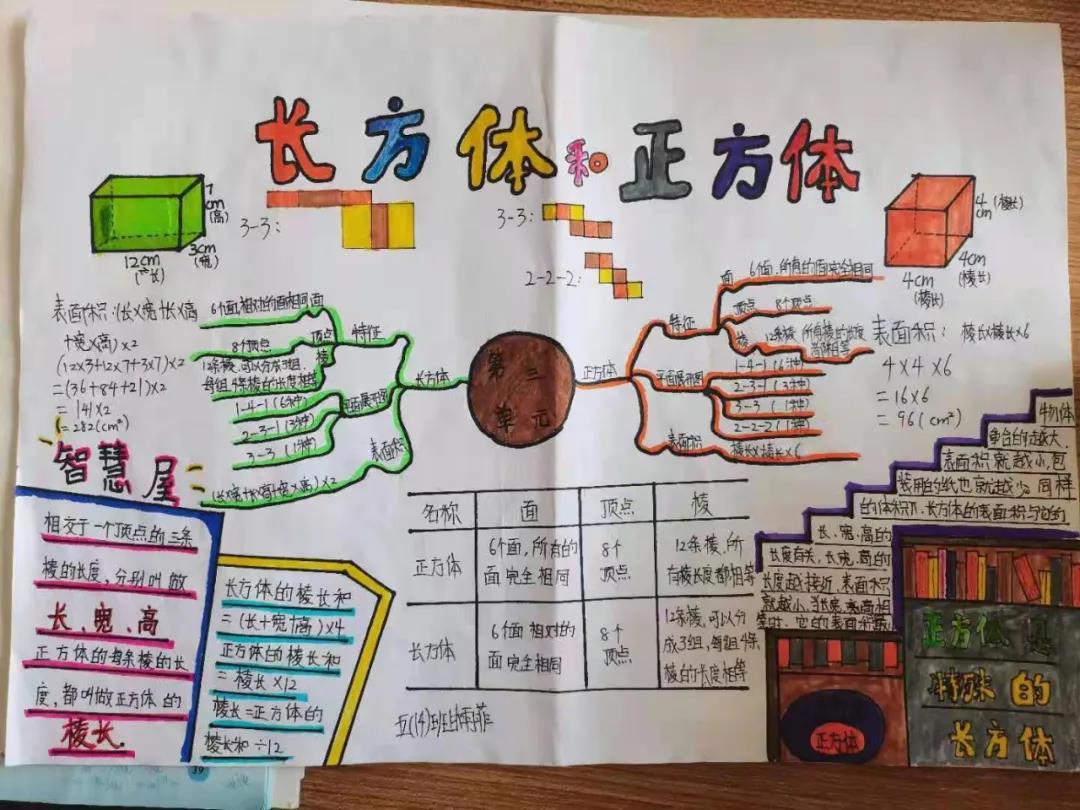 长方体和正方体
7cm(高)
3cm(宽)
12cm
(长)
3-3:
3-3:
2-2-2:
4cm (棱长)
4cm
(棱长)
4cm
(棱长)
表面积:(长×宽+长×高
+宽×高)×2
(12×3+12×7+3×7)×2
=(36+84+21)×2
=141×2
=282(cm²)
第三
单元
长方体
特征
面
6个面,相对的面相同
顶点
8个顶点
棱
12条棱,可以分成3组,
每组4条棱的长度相等
平面展开图
1-4-1(6种)
2-3-1(3种)
3-3(1种)
表面积
(长×宽+长×高+宽×高)×2
正方体
特征
面
6个面,所有的面完全相同
顶点
8个顶点
棱
12条棱,所有棱的长度
都相等
平面展开图
1-4-1(6种)
2-3-1(3种)
3-3(1种)
2-2-2(1种)
表面积
棱长×棱长×6
表面积: 棱长×棱长×6
4×4×6
=16×6
=96(cm²)
智慧屋
相交于一个顶点的三条
棱的长度,分别叫做
长、宽、高
正方体的每条棱的长
度,都叫做正方体的
棱长.
长方体的棱长和
=(长+宽+高)×4
正方体的棱长和
=棱长×12
棱长=正方体的
棱长和÷12
名称 面 顶点 棱
正方体 6个面,所有的面完全相同 8个顶点 12条棱,所有棱长度都相等
长方体 6个面相对的面完全相同 8个顶点 12条棱,可以分成3组,每组4条棱的长度相等
五(14)班
物体
重合的越大,
表面积就越小,包
装用的纸也就越少。同样
的体积,长方体的表面积与它的
长、宽、高的
长度有关,长,宽,高的
长度越接近,表面积
就越小,
它的表面积
正方体是
特殊的
长方体
正方体
39